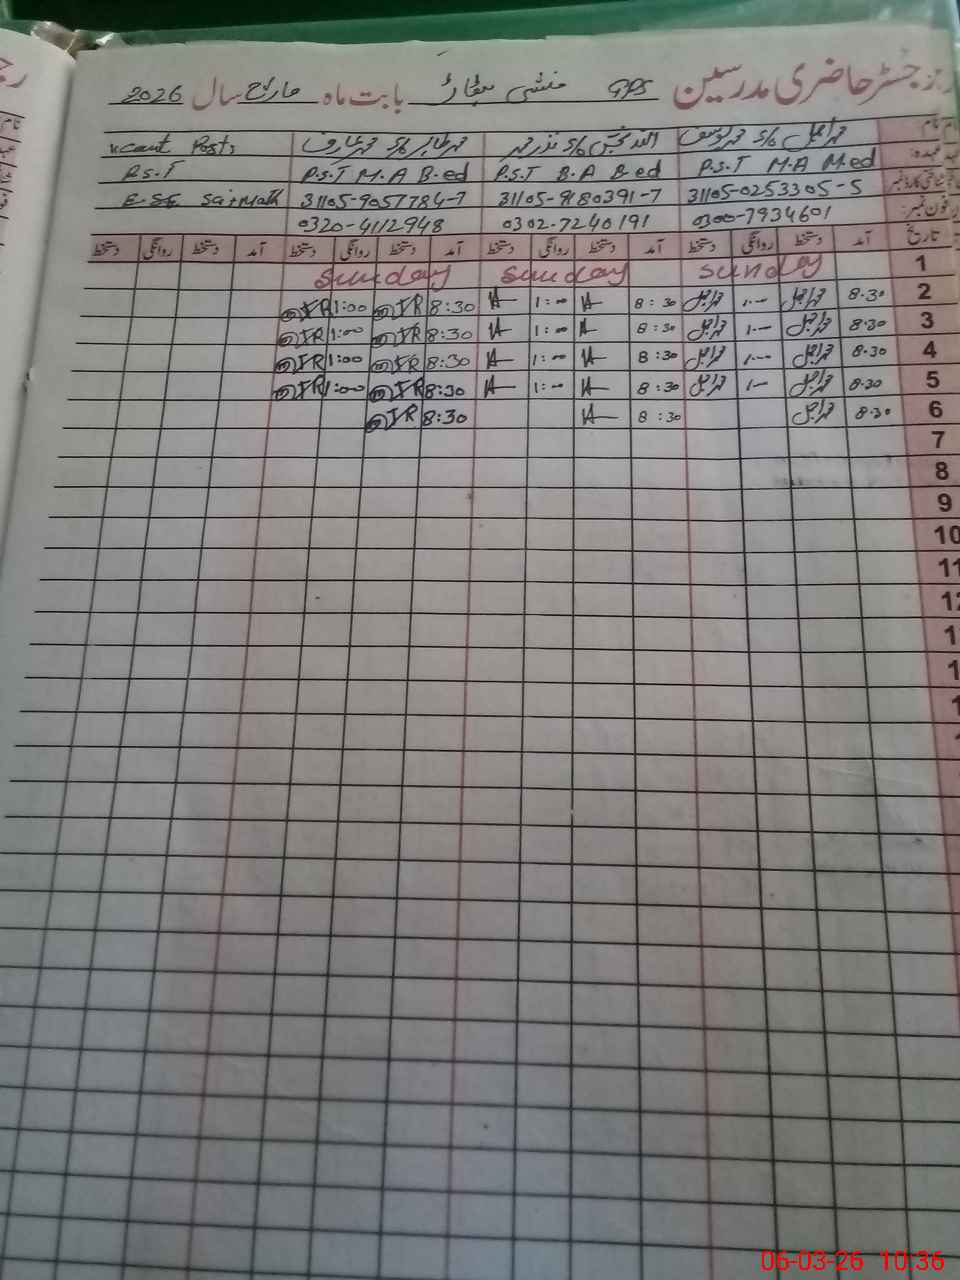 رجسٹر حاضری مدرسین GPS منشی بھٹار بابت ماہ مارچ سال 2026
نام محمد اجمل S/o محمد یوسف اللہ بخش S/o نذر محمد محمد طاہر S/o محمد عارف Vacant Posts
عہدہ: P.S.T M.A M.ed P.S.T B.A B.ed P.S.T M.A B.ed P.S.T
شناختی کارڈ نمبر 31105-0253305-5 31105-9180391-7 31105-9057784-7 E.S.E Sci+Math
فون نمبر: 0300-7934601 0302-7240191 0320-4112948
تاریخ آمد دستخط روانگی دستخط آمد دستخط روانگی دستخط آمد دستخط روانگی دستخط آمد دستخط روانگی دستخط
1 Sunday Sunday Sunday
2 8.30 محمد اجمل 1.00 محمد اجمل 8:30 A 1:00 A 8:30 TR 1:00 TR
3 8.30 محمد اجمل 1.00 محمد اجمل 8:30 A 1:00 A 8:30 TR 1:00 TR
4 8.30 محمد اجمل 1.00 محمد اجمل 8:30 A 1:00 A 8:30 TR 1:00 TR
5 8.30 محمد اجمل 1.00 محمد اجمل 8:30 A 1:00 A 8:30 TR 1:00 TR
6 8.30 محمد اجمل 8:30 A 8:30 TR
7
8
9
10
11
06-03-26 10:36